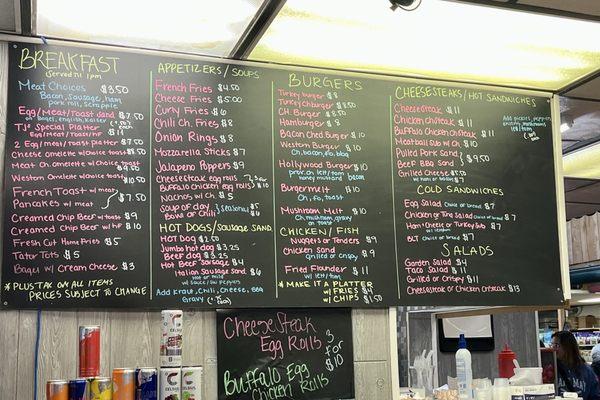 BREAKFAST
(Served til 1pm)
Meat Choices $3.50
Bacon, Sausage, ham
pork roll, scrapple
Egg/meat/toast Sand $7.50
TJ's Special Platter $11
Egg/meat/toast/HF
2 Egg/meat/toast $7.50
Cheese omelette w/choice toast $8.50
Meat Omelette w/choice toast $9.50
Western Omelette w/choice toast $10.50
French Toast w/ meat
Pancakes w/ meat $7.50
Creamed Chip Beef w/toast $9
Creamed Chip Beef w/HF $10
Fresh Cut Home Fries $5
Tator Tots $5
Bagel w/ Cream Cheese $3
*PLUS TAX ON ALL ITEMS
PRICES SUBJECT TO CHANGE
APPETIZERS / SOUPS
French Fries $4.50
Cheese Fries $5.00
Curly Fries $6
Chili Ch. Fries $8
Onion Rings $8
Mozzarella Sticks $7
Jalapeno Poppers $9
Cheesesteak egg rolls
Buffalo Chicken egg rolls 3 for $10
Nachos w/ Ch. $5
Soup of day
Bowl of Chili } seasonal $5 $6
HOT DOGS / SAUSAGE SAND.
Hot Dog $2.50
Jumbo hot dog $3.25
Beef dog $3.25
Hot Beef Sausage $4
Italian Sausage Sand $6
hot or mild
w/ sauce/ov peppers
Add Kraut, Chili, Cheese, BBQ
Gravy
BURGERS
Turkey burger $8
Turkey ch.burger $8.50
CH. Burger $8.50
Hamburger $8
Bacon Ched Burger $10
Western Burger $10
Ch, bacon, ifo, bbq
Hollywood Burger $10
prov. on left/tom
honey mustard, bacon
Burgermelt $10
Ch, ifo, toast
Mushroom Melt $10
Ch, mushroom, gravy
on toast
CHICKEN / FISH
Nuggets or Tenders $9
Chicken Sand $9
Grilled or crispy
Fried Flounder $11
w/ lett/tom
*MAKE IT A PLATTER
w/ FRIES $4
w/ CHIPS $1.50
CHEESESTEAKS / HOT SANDWICHES
Cheesesteak $11
Chicken Ch/steak $11
Buffalo Chicken Ch/steak $11
Meatball Sub w/ Ch $10
Pulled Pork Sand
Beef BBQ Sand } $9.50
Grilled Cheese $5.50
w/ ham or bacon $7
Add pickles, peppers
lett/tom
COLD SANDWICHES
Egg Salad choice of bread $7
Chicken or Tuna Salad choice of bread $7
Ham + Cheese or Turkey Sub $7
BLT choice of bread $7
SALADS
Garden Salad $4
Taco Salad $11
Grilled or Crispy $11
Cheesesteak or Chicken Ch/steak $13
Cheesesteak
Egg Rolls
Buffalo
Chicken
Egg
Rolls
3
for
$10